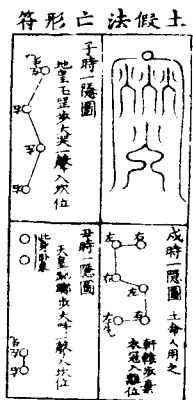 土假法亡形符
子時一隱圖
地皇玉罡步大哭一聲入坎位
戌時一隱圖
土命人用之
右
左
右
左
左
右
軒轅步素
衣冠入離位
丑時一隱圖
天皇步大呼一聲入坎位